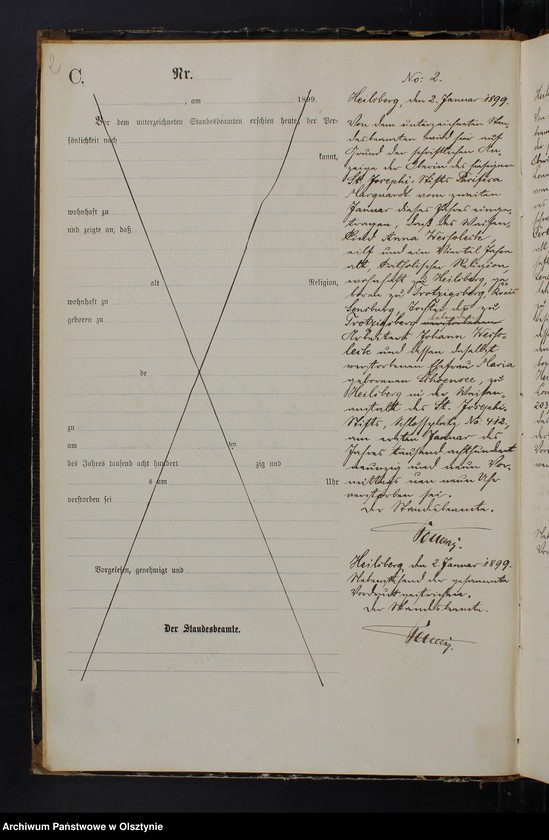 2
C.
Nr.
, am 1899.
Vor dem unterzeichneten Standesbeamten erschien heute, der Per-
sönlichkeit nach
kannt,
wohnhaft zu
und zeigte an, daß
alt Religion,
wohnhaft zu
geboren zu
de
zu
am ten
des Jahres tausend acht hundert zig und
s um Uhr
verstorben sei
Vorgelesen, genehmigt und
Der Standesbeamte.
No: 2.
Heilsberg, den 2. Januar 1899.
Von dem unterzeichneten Stan-
desbeamten wird hier auf
Grund der schriftlichen An-
zeige der Oberin des hiesigen
St. Josephi-Stifts Pacifica
Marquardt vom zweiten
Januar dieses Jahres einge-
tragen, daß das Waisen-
kind Anna
eilf und ein Viertel Jahre
alt, katholischer Religion,
wohnhaft zu Heilsberg, ge-
boren zu Protzigsberg, Kreis
Sensburg, Tochter des zu
Arbeiters Johann
und dessen daselbst
verstorbenen Ehefrau Maria
geborenen Schoensee, zu
Heilsberg in der Waisen-
anstalt des St. Josephi-
Stifts, Schloßplatz No: 412,
am ersten Januar des
Jahres tausend achthundert
neunzig und neun Vor-
mittags um neun Uhr
verstorben sei.
Der Standesbeamte.
Heilsberg, den 2 Januar 1899.
Nebenstehend der gesammte
Vordruck gestrichen.
Der Standesbeamte.
Archiwum Państwowe w Olsztynie